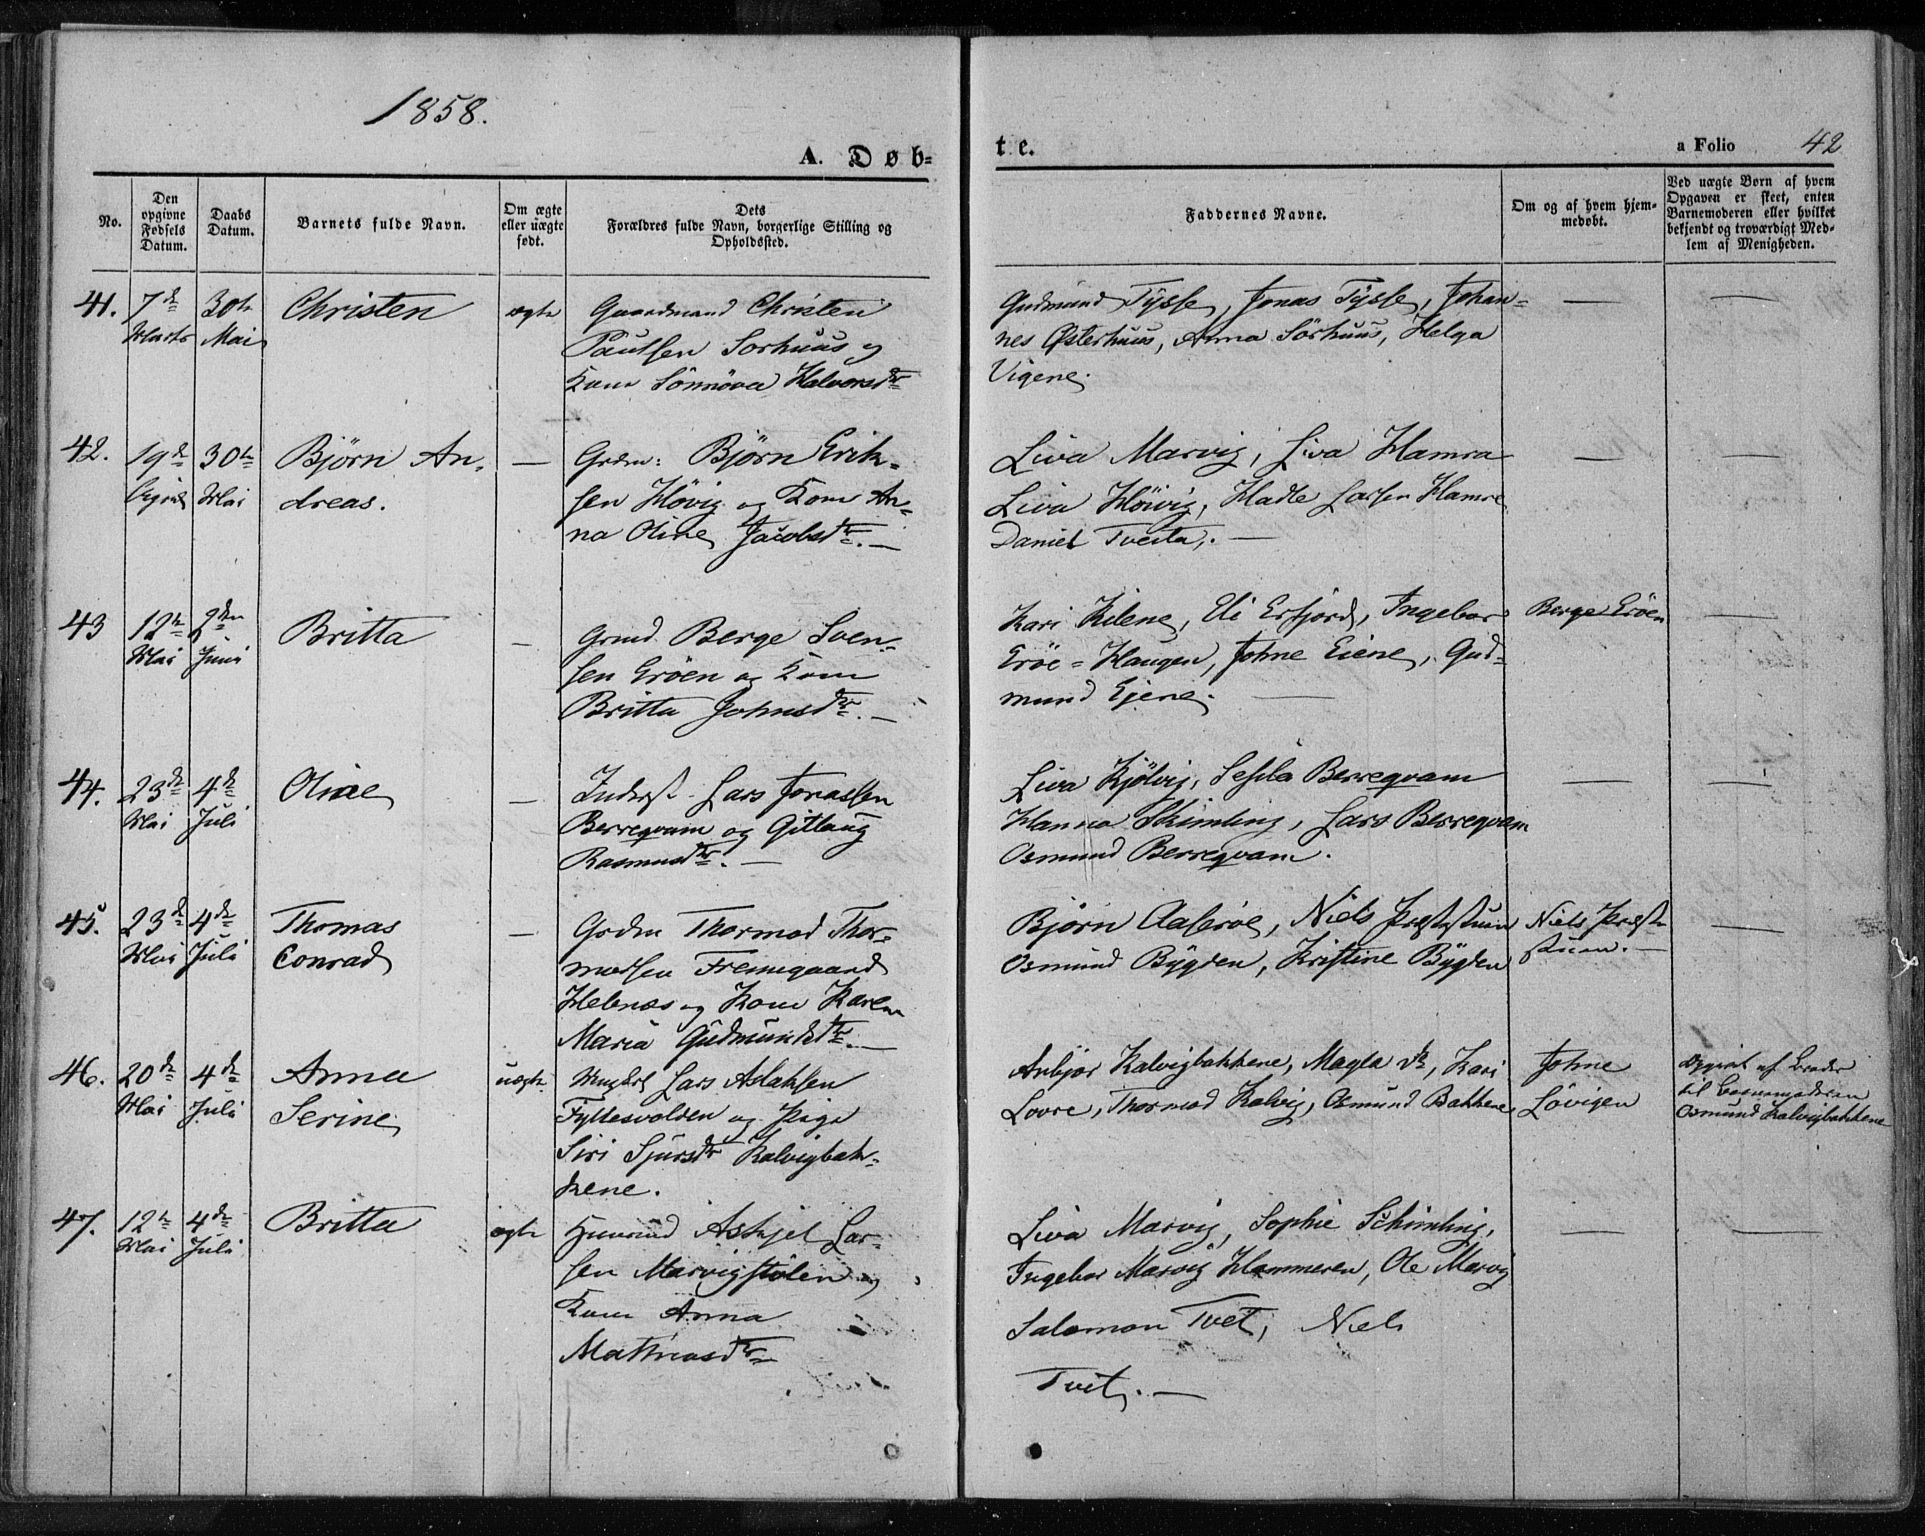 1858.
A. Døb-
te.
a Folio 42
No.
Den opgivne Fødsels Datum.
Daabs Datum.
Barnets fulde Navn.
Om ægte eller uægte født.
Dets
Forældres fulde Navn, borgerlige Stilling og
Opholdssted.
Faddernes Navne.
Om og af hvem hjem-
medøbt.
Ved uægte Børn af hvem
Opgaven er skeet, enten
Barnemoderen eller hvilket
bekjendt og troværdigt Med-
lem af Menigheden.
41. 7de 30te Christen ægte Gaardmand Christen
Marts Mai Paulsen Sørhuus og
Kone Sönnöva Halvorsdtr
Gudmund Tysse, Jonas Tysse, Johan-
nes Østerhuus, Anna Sörhuus, Helga
Vigene.
42. 19de 30te Björn An- — Grdm: Bjørn Erik-
April Mai dreas. sen Höivig og Kone An-
na Oline Jacobsdtr. —
Liva Marvig, Liva Hamra —
Liva Höivig, Hadle Larsen Hamre
Daniel Tveita. —
43 12te 2den Britta — Grmd. Berge Sven-
Mai Juni sen Eröen og Kone
Britta Johnsdtr. —
Kari Kilene, Eli Erfjord, Ingebor Berge Eröen —
Eröe-Haugen, Johne Eiene, Gud-
mund Ejene. —
44. 23de 4de Oline — Inderst Lars Jonassen
Mai Juli Berreqvam og Gitlaug
Rasmusdtr. —
Liva Kjölvig, Sesila Berreqvam —
Hanna Skimling, Lars Berreqvam
Osmund Berreqvam.
45. 23de 4de Thomas — Grdm Thormod Thor-
Mai Juli Conrad modsen Fremegaard
Helenæs og Kone Karen
Maria Gudmundsdtr. —
Björn Aaleröe, Niels Præstestuen Niels Præste —
Osmund Bygden, Kristine Bygden stuen. —
46. 20de 4de Anna uægte Ungkrl Lars Aslaksen
Mai Juli Serine Fyllesvolden og Pige
Siri Sjursdtr Kalvigbak-
kene.
Anbjør Kalvigbakkene, Magla do, Kari Johne Opgivet af Broder
Lovre, Thormod Kalvig, Osmund Bakkene Lövigen til Barnemoderen
Osmund Kalvigbakkene
47. 12te 4de Britta ægte Huusmd Askjel Lar-
Mai Juli sen Marvigstölen og
Kone Anna
Mathiasdtr
Liva Marvig, Sophie Schimling, —
Ingebor Marvig Hammeren, Ole Marvig
Salomon Tvet, Niels
Tvet. —